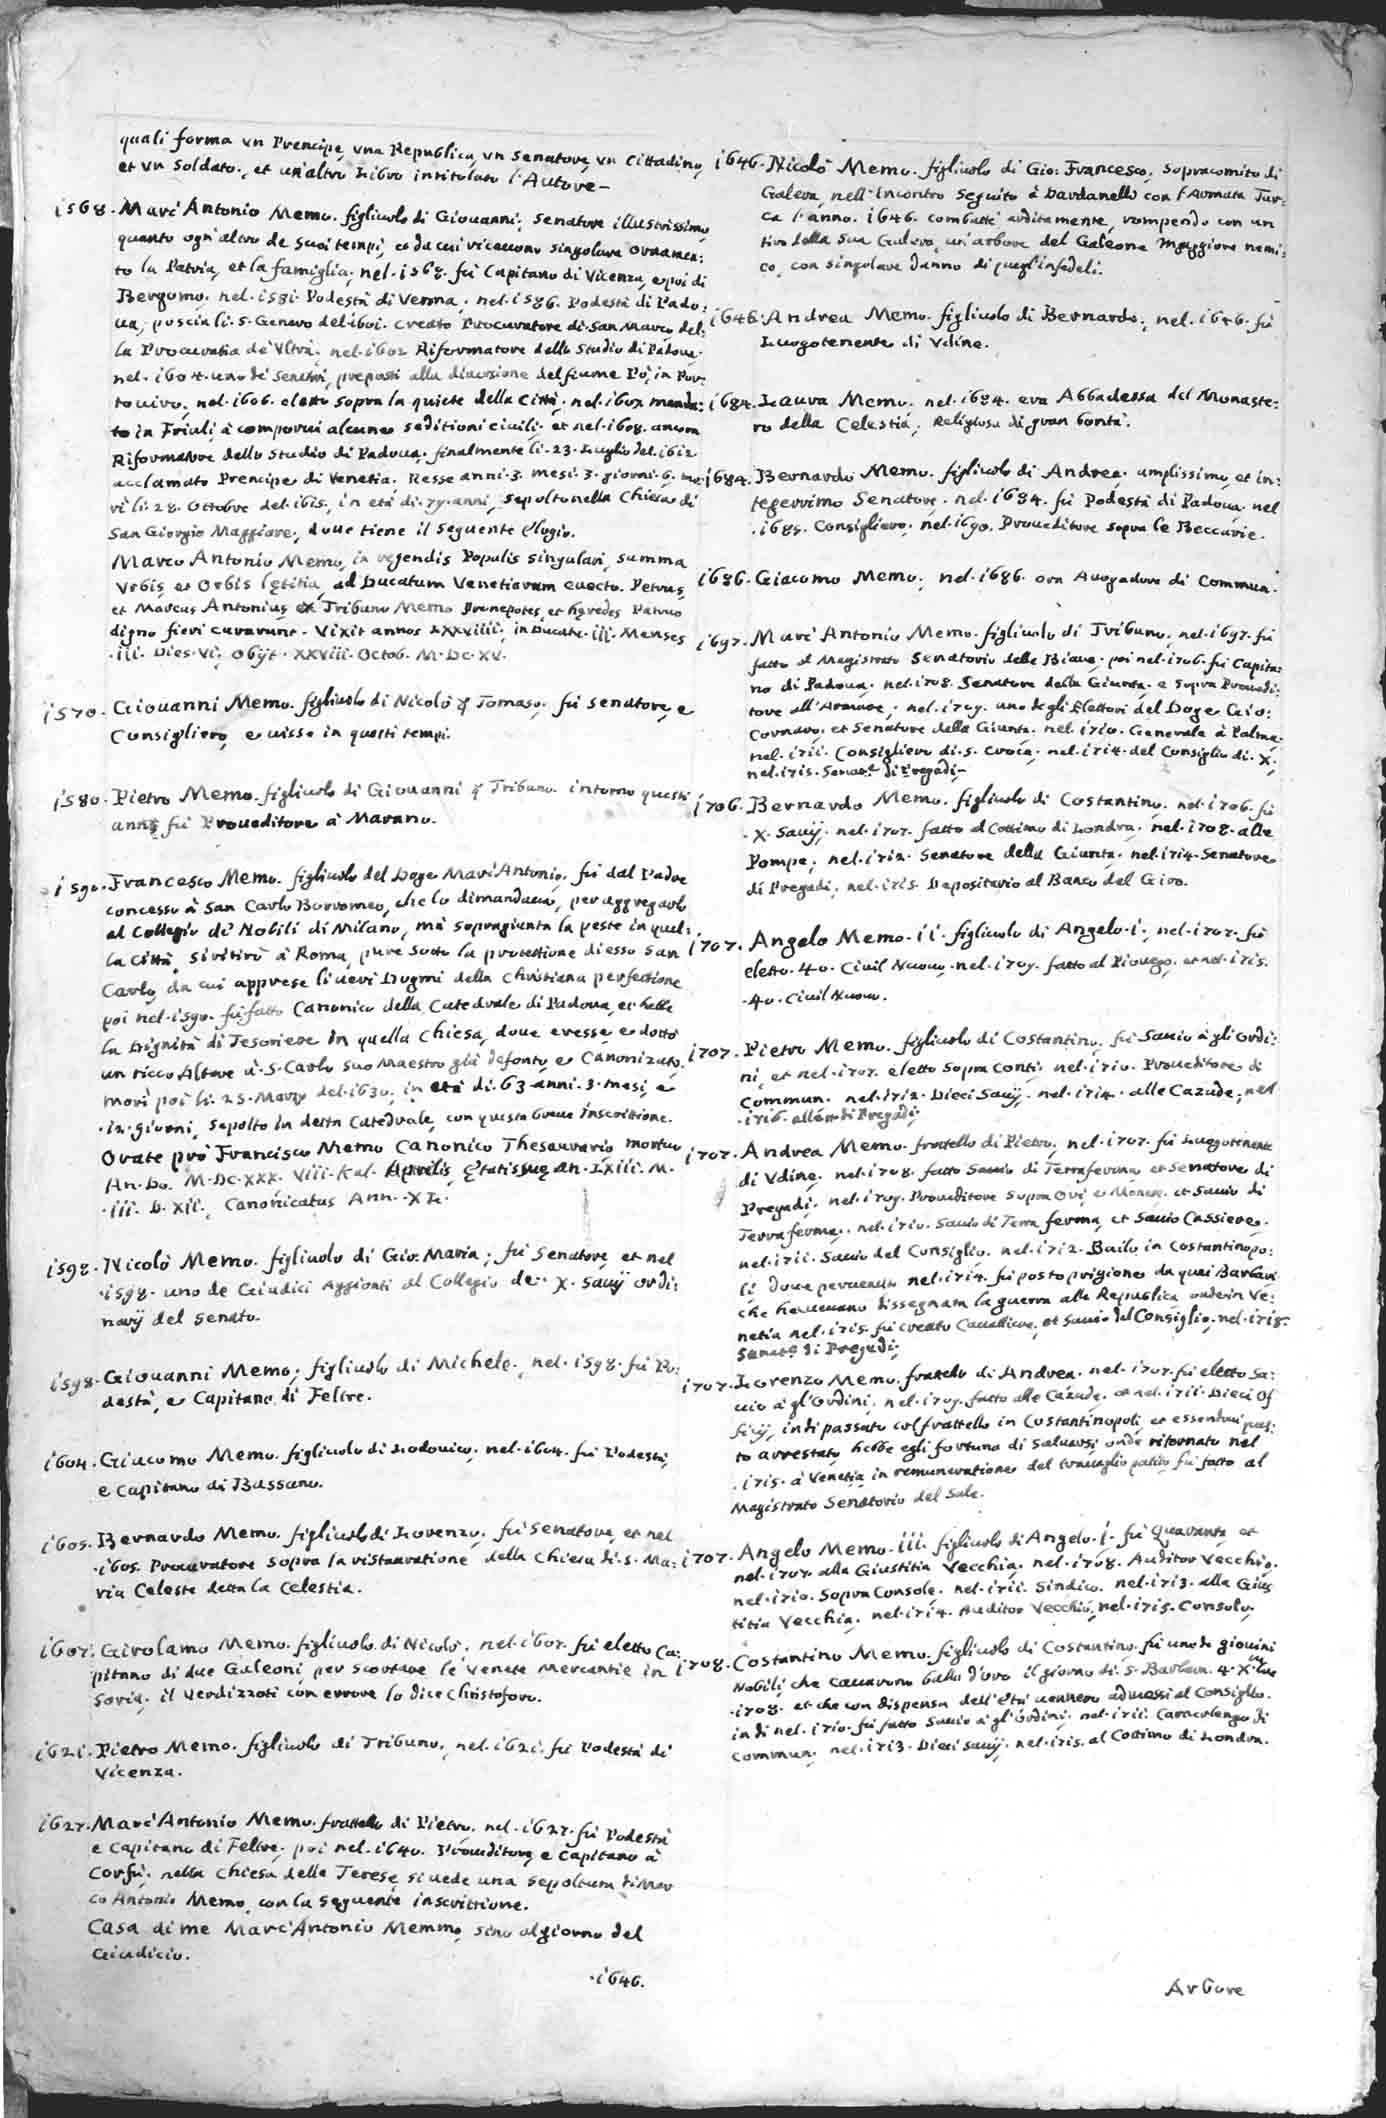 quali forma vn Prencipe, vna Republica, vn Senatore, vn Cittadino,
et vn Soldato., et un'altro Libro intitolato l'Autore-
1568. Marc'Antonio Memo. figliuolo di Giouanni; Senatore illustrissimo
quanto ogn'altro de suoi tempi, e da cui riceuerono singolare ornamen:
to la Patria, et la famiglia, nel.1568. fù Capitano di Vicenza, e poi di
Bergomo. nel.1581. Podestà di Verona, nel.1586. Podestà di Pado:
ua, poscia li.5. Genaro del.1601. creato Procuratore di San Marco del:
la Procuratia de Vltra; nel.1602 Riformatore dello Studio di Padoua.
nel.1604. uno de Senatori, preposti alla diuersione del fiume Pò, in Por:
to uiro, nel.1606. eletto sopra la quiete della Città, nel.1607 manda:
to in Friuli à comporui alcune seditioni ciuili; et nel.1608. ancora
Riformatore dello Studio di Padoua. finalmente li.23. Luglio del.1612.
acclamato Prencipe di Venetia. Resse anni.3. mesi.3. giorni.6. mo:
rì li.28. Ottobre del.1615., in età di.79. anni, sepolto nella Chiesa di
San Giorgio Maggiore., doue tiene il seguente elogio.
Marco Antonio Memo, in regendis Populis singulari, summa
Vrbis, et Orbis lętitia, ad Ducatum Venetiarum euecto. Petrus,
et Marcus Antonius, ex Tribuno Memo Pronepotes, et hęredes Patruo
digno fieri curarunt. Vixit annos LXXVIIII. in Ducatu. iii. Menses
.III. Dies.VI, Obijt. XXVIII. Octob. M.DC.XV.
1570. Giouanni Memo. figliuolo di Nicolò q Tomaso, fù senatore, e
Consigliero, e uisse in questi tempi.
1580. Pietro Memo. figliuolo di Giouanni q Tribuno. intorno questi
anni fù Proueditore à Marano.
1590. Francesco Memo. figliuolo del Doge Marc'Antonio, fù dal Padre
concesso à San Carlo Borromeo, che lo dimandaua, per aggregarlo
al Collegio di Nobili di Milano, mà sopragiunta la peste in quel:
la Città, si ritirò à Roma, pure sotto la protettione di esso San
Carlo, da cui apprese li ueri Dogmi della Christiana perfettione
poi nel.1590. fù fatto Canonico della Catedrale di Padoua, et hebbe
la Dignità di Tesoriere in quella Chiesa, doue eresse, e dottò
un ricco Altare à S. Carlo suo Maestro già defonto, e Canonizato.
morì poi li.25. Marzo del.1630., in età di.63. anni.3. mesi, e
.12. giorni, sepolto in detta Catedrale, con questa breue Inscrittione.
Orate prò Francisco Memo Canonico Thesaurario, mortuo
An. Do. M.DC.XXX. VIII. Kal. Aprilis, Ętatis suę An. LXIII. M.
.III. D. XII., Canonicatus Ann. XL.
1598. Nicolò Memo. figliuolo di Gio: Maria; fù senatore, et nel
.1598. uno de Giudici Aggionti al Collegio de. X. Sauij ordi:
narij del Senato.
1598. Giouanni Memo; figliuolo di Michele, nel.1598. fù Po:
destà, e Capitano di Feltre.
1604. Giacomo Memo. figliuolo di Lodouico, nel.1604. fù Podestà,
e Capitano di Bassano.
1605. Bernardo Memo. figliuolo di Lorenzo, fù senatore, et nel
.1605. Procuratore sopra la ristauratione della Chiesa di S. Ma:
ria Celeste detta la Celestia.
1607. Girolamo Memo. figliuolo di Nicolò. nel.1607. fù eletto Ca:
pitano di due Galeoni, per scortare le Venete Mercantie in
Soria. il Verdizzoti con errore lo dice Christoforo.
1621. Pietro Memo. figliuolo di Tribuno, nel.1621. fù Podestà di
Vicenza.
1627. Marc'Antonio Memo. frattello di Pietro. nel.1627. fù Podestà
e Capitano di Feltre, poi nel.1640. Proueditore, e Capitano à
Corfù, nella Chiesa delle Terese, si uede una sepoltura di Mar
co Antonio Memo, con la seguente inscrittione.
Casa di me Marc'Antonio Memmo, sino al giorno del
Giudicio.
.1646.
1646. Nicolò Memo. figliuolo di Gio: Francesco, Sopracomito di
Galera, nell'Incontro seguito à Dardanelli con l'Armata Tur:
ca l'anno. 1646. combattè arditamente, rompendo con un
tiro della sua Galera, un'arbore del Galeone Maggiore nemi:
co, con singolare danno di quegl'infedeli.
1646. Andrea Memo. figliuolo di Bernardo., nel.1646. fù
Luogotenente di Vdine.
1684. Laura Memo. nel.1684. era Abbadessa del Monaste:
ro della Celestia, Religiosa di gran bontà.
1684. Bernardo Memo. figliuolo di Andrea, amplissimo, et in:
tegerrimo Senatore, nel.1684. fù Podestà di Padoua. nel
.1685. Consigliero, nel.1690. Proueditore sopra le Beccarie.
1686. Giacomo Memo; nel.1686. era Auogadore di Commun.
1697. Marc'Antonio Memo. figliuolo di Tribuno, nel.1697. fù
fatto al Magistrato Senatorio delle Biaue. poi nel.1706. fù Capita:
no di Padoua. nel.1708. Senatore della Giunta, e Sopra Proued:
tore all'Armare, nel.1709. uno degli Elettori del Doge Gio:
Cornaro, et Senatore della Giunta. nel.1710. Generale à Palma.
nel.1711. Consigliero di.S. Croce, nel.1714. del Consiglio di. X.,
nel.1715. Senat.r di Pregadi-
1706. Bernardo Memo. figliuolo di Costantino, nel.1706. fù
.X. Sauij, nel.1707. fatto al Cottimo di Londra, nel.1708. alle
Pompe, nel.1712. Senatore della Giunta. nel.1714. Senatore
di Pregadi, nel.1715. Depositario al Banco del Giro.
1707. Angelo Memo. II. figliuolo di Angelo.I., nel.1707. fù
eletto.40. Ciuil Nuouo. nel.1709. fatto al Piouego, et nel.1715.
.40. Ciuil Nuouo.
1707. Pietro Memo. figliuolo di Costantino, fù Sauio à gli Ordi:
ni, et nel.1707. eletto sopra Conti, nel.1710. Proueditore di
Commun. nel.1712. Dieci Sauij, nel.1714. alle Cazude, nel
.1716. di Pregadi,
1707. Andrea Memo. frattello di Pietro, nel.1707. fù Luogotenente
di Vdine, nel.1708. fatto Sauio di Terraferma, et Senatore di
Pregadi. nel.1709. Proueditore sopra Ori, e Monete, et Sauio di
Terraferma. nel.1710. Sauio di Terra ferma, et Sauio Cassiere.
nel.1711. Sauio del Consiglio. nel.1712. Bailo in Costantinopo:
li, doue peruenuto nel.1714. fù posto prigione da quei Barbari
che haueuano dissegnata la guerra alla Republica, onde in Ve:
netia nel.1715. fù creato Caualliere, et Sauio del Consiglio, nel.1718.
di Pregadi;
1707. Lorenzo Memo. fratello di Andrea. nel.1707. fù eletto Sa:
uio à gl'Ordini, nel.1709. fatto alle Cazude, et nel.1711. Dieci Of
ficij, indi passato col frattello in Costantinopoli, et essendoui
to arrestato, hebbe egli fortuna di saluarsi, onde ritornato nel
.1715. à Venetia, in remuneratione del trauaglio patito, fù fatto al
Magistrato Senatorio del Sale.
1707. Angelo Memo. III. figliuolo di Angelo.I. fù Quaranta, et
nel.1707. alla Giustitia Vecchia, nel.1708. Auditor Vecchio.
nel.1710. Sopra Consolo, nel.1711. Sindico, nel.1713. alla Gius
titia Vecchia, nel.1714. Auditor Vecchio, nel.1715. Consolo.
1708. Costantino Memo. figliuolo di Costantino. fù uno de giouini
Nobili, che cauarono balla d'oro il giorno di.S. Barbara. 4.X.bre
.1708. et che con dispensa dell'età uennero admessi al Consiglio.
indi nel.1710. fù fatto Sauio à gl'Ordini, nel.1711. Carocolengo di
Commun, nel.1713. Dieci Sauij, nel.1715. al Cottimo di Londra.
Arbore